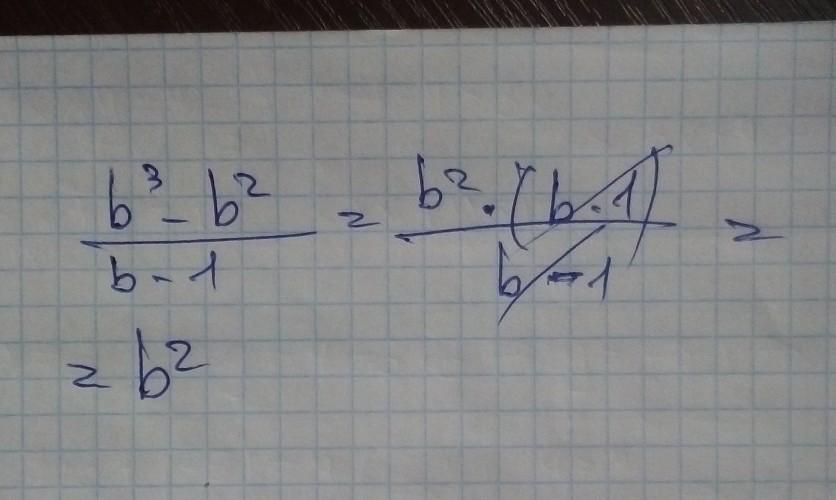 b³ - b² / b - 1 = b² · (b - 1) / b - 1 =
= b²